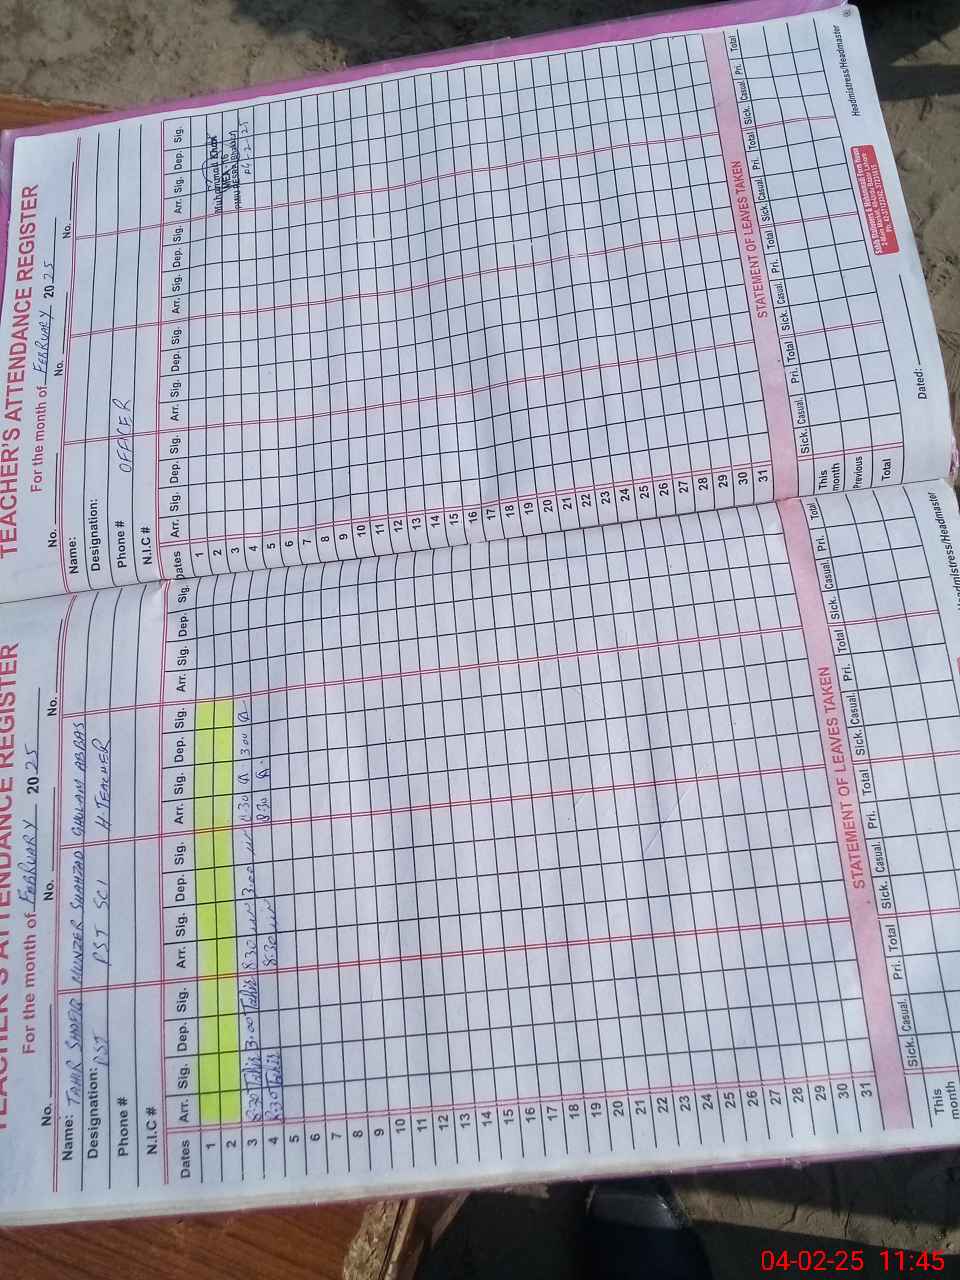 TEACHER'S ATTENDANCE REGISTER
For the month of FEBRUARY 2025
No. No. No.
Name: TAHIR SHAFIQ MUNZER SHAHZAD GHULAM ABBAS
Designation: PST PST SCI H.TEACHER
Phone #
N.I.C #
Dates Arr. Sig. Dep. Sig. Arr. Sig. Dep. Sig. Arr. Sig. Dep. Sig. Arr. Sig. Dep. Sig.
1
2
3 8:30 Tahir 3:00 Tahir 8:30 3:00 8:30 3:00
4 8:30 Tahir 8:30 8:30
5
6
7
8
9
10
11
12
13
14
15
16
17
18
19
20
21
22
23
24
25
26
27
28
29
30
31
STATEMENT OF LEAVES TAKEN
Sick. Casual. Pri. Total Sick. Casual. Pri. Total Sick. Casual. Pri. Total Sick. Casual. Pri. Total
This month
Headmistress/Headmaster
TEACHER'S ATTENDANCE REGISTER
For the month of FEBRUARY 2025
No. No. No.
Name:
Designation:
Phone # OFFICER
N.I.C #
Dates Arr. Sig. Dep. Sig. Arr. Sig. Dep. Sig. Arr. Sig. Dep. Sig. Arr. Sig. Dep. Sig.
1
2 Muhammad Khan
3 MEA-16
4 04-2-25
5
6
7
8
9
10
11
12
13
14
15
16
17
18
19
20
21
22
23
24
25
26
27
28
29
30
31
STATEMENT OF LEAVES TAKEN
Sick. Casual. Pri. Total Sick. Casual. Pri. Total Sick. Casual. Pri. Total Sick. Casual. Pri. Total
This month
Previous
Total
Dated:
Headmistress/Headmaster
04-02-25 11:45